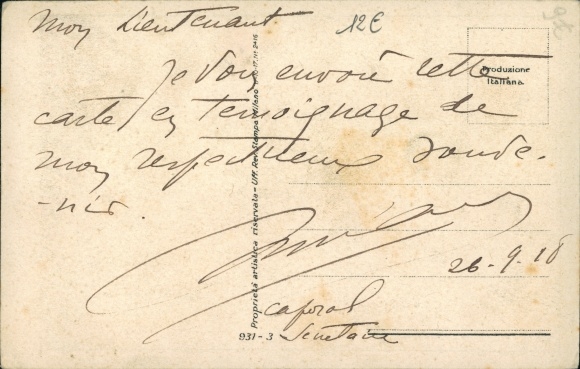 Mon Lieutenant
12€
Je vous envoie cette
carte en témoignage de
mon respectueux souve-
-nir.
26-9-18
caporal
Secrétaire
Produzione
Italiana.
Proprietà artistica riservata - Uff. Rev. Stampa Milano
931-3